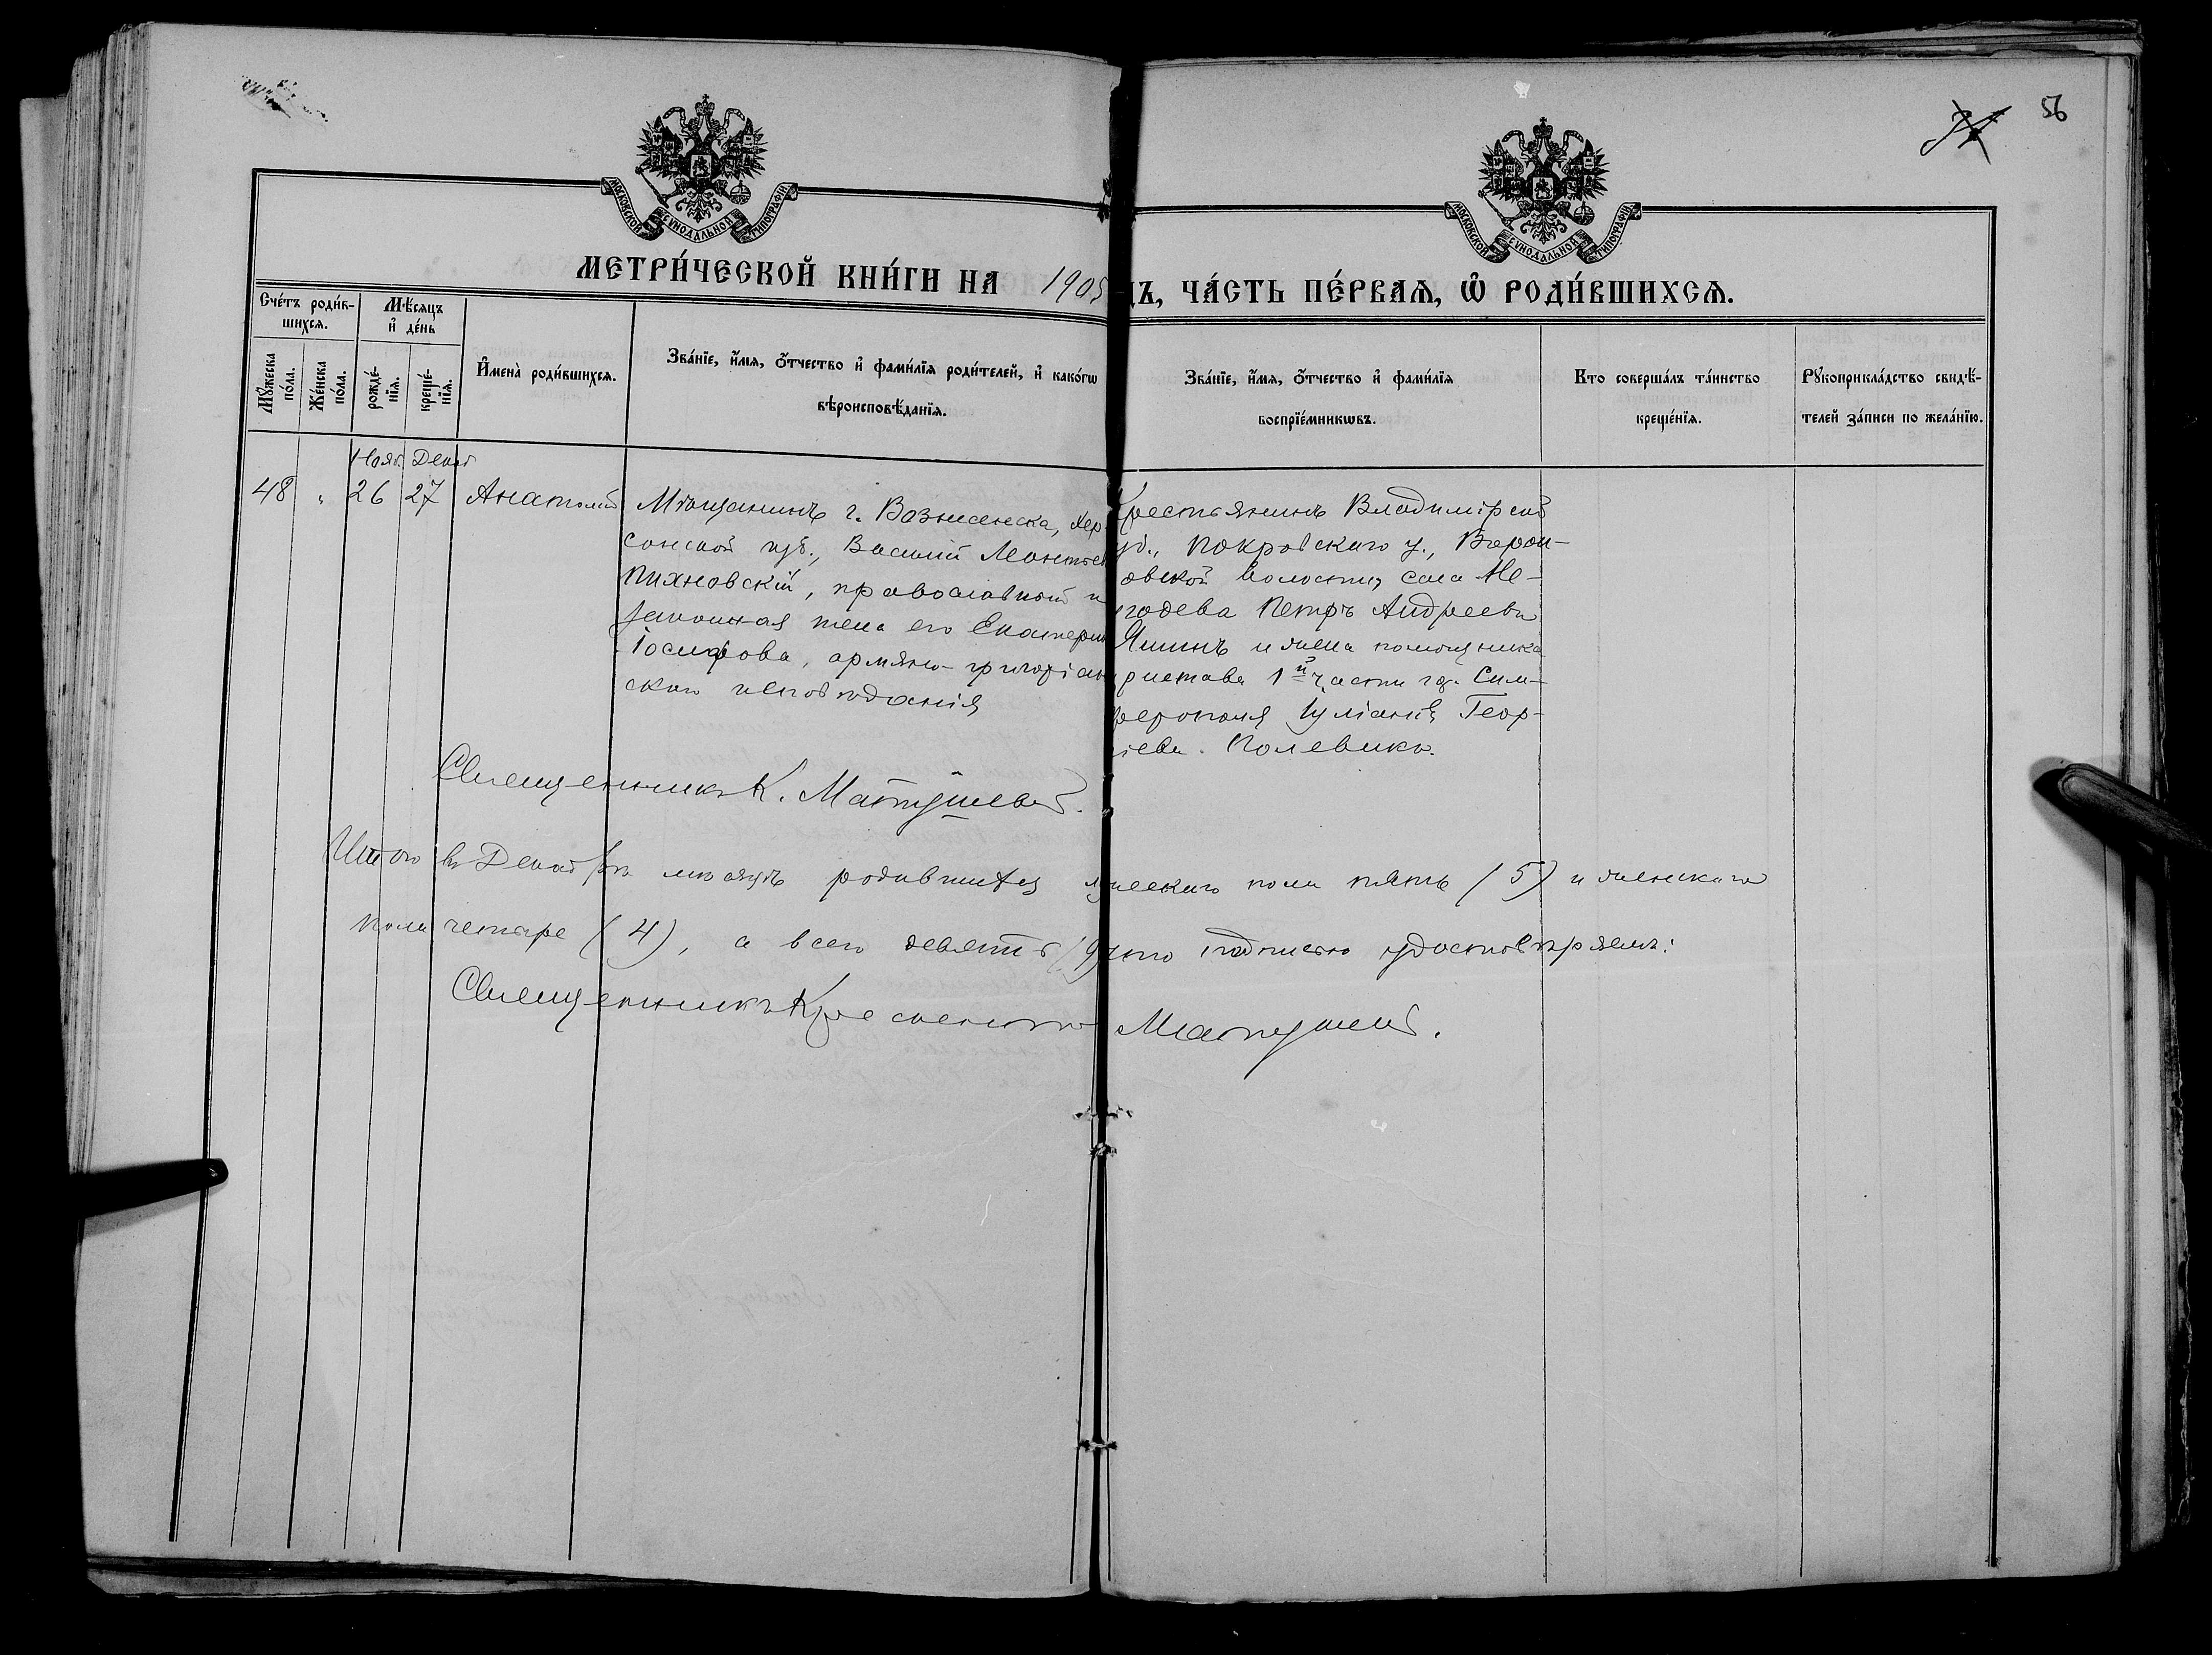 56
МОСКОВСКОЙ СѴНОДАЛЬНОЙ ТИПОГРАФІИ
МОСКОВСКОЙ СѴНОДАЛЬНОЙ ТИПОГРАФІИ
МЕТРИ́ЧЕСКОЙ КНИ́ГИ НА 1905
ДЪ, ЧА́СТЬ ПЕ́РВАѦ, Ѡ҆ РОДИ́ВШИХСѦ.
Сче́тъ роди́вшихсѧ.
Мѣ́сѧцъ и҆ де́нь
Мꙋ́жеска по́ла.
Же́нска по́ла.
рожде́нїѧ.
креще́нїѧ.
И҆мена̀ роди́вшихсѧ.
Зва́нїе, и҆́мѧ, ѻ҆́тчество и҆ фами́лїѧ роди́телей, и҆ како́гѡ
вѣроисповѣ́данїѧ.
Зва́нїе, и҆́мѧ, ѻ҆́тчество и҆ фами́лїѧ
воспрїе́мникѡвъ.
Кто соверша́лъ та́инство
креще́нїѧ.
Рꙋкоприкла́дство свидѣ́-
телей за́писи по жела́нїю.
Нояб. Декаб
48 " 26 27 Анатолій
Мѣщанинъ г. Вознесенска, Хер
сонской губ., Василій Леонтьев
Пихновскій, православный и
законная жена его Екатерин
Іосифова, армяно-григоріан
скаго исповѣданія
Крестьянинъ Владимірской
уб., Покровскаго у., Ворон-
овской волости, села
Петръ Андреевъ
Яшинъ и жена помощника
ристава 1й части гор. Сим-
ферополя Іуліанія Геор-
іева Полевико.
Священникъ К. Матушевъ.
Итого въ Декабрѣ мѣсяцѣ родившихся мужескаго пола пять (5) и женскаго
пола четыре (4), а всего девять (9) что подписью удостовѣряемъ:
Священникъ Крескентъ Матушевъ.